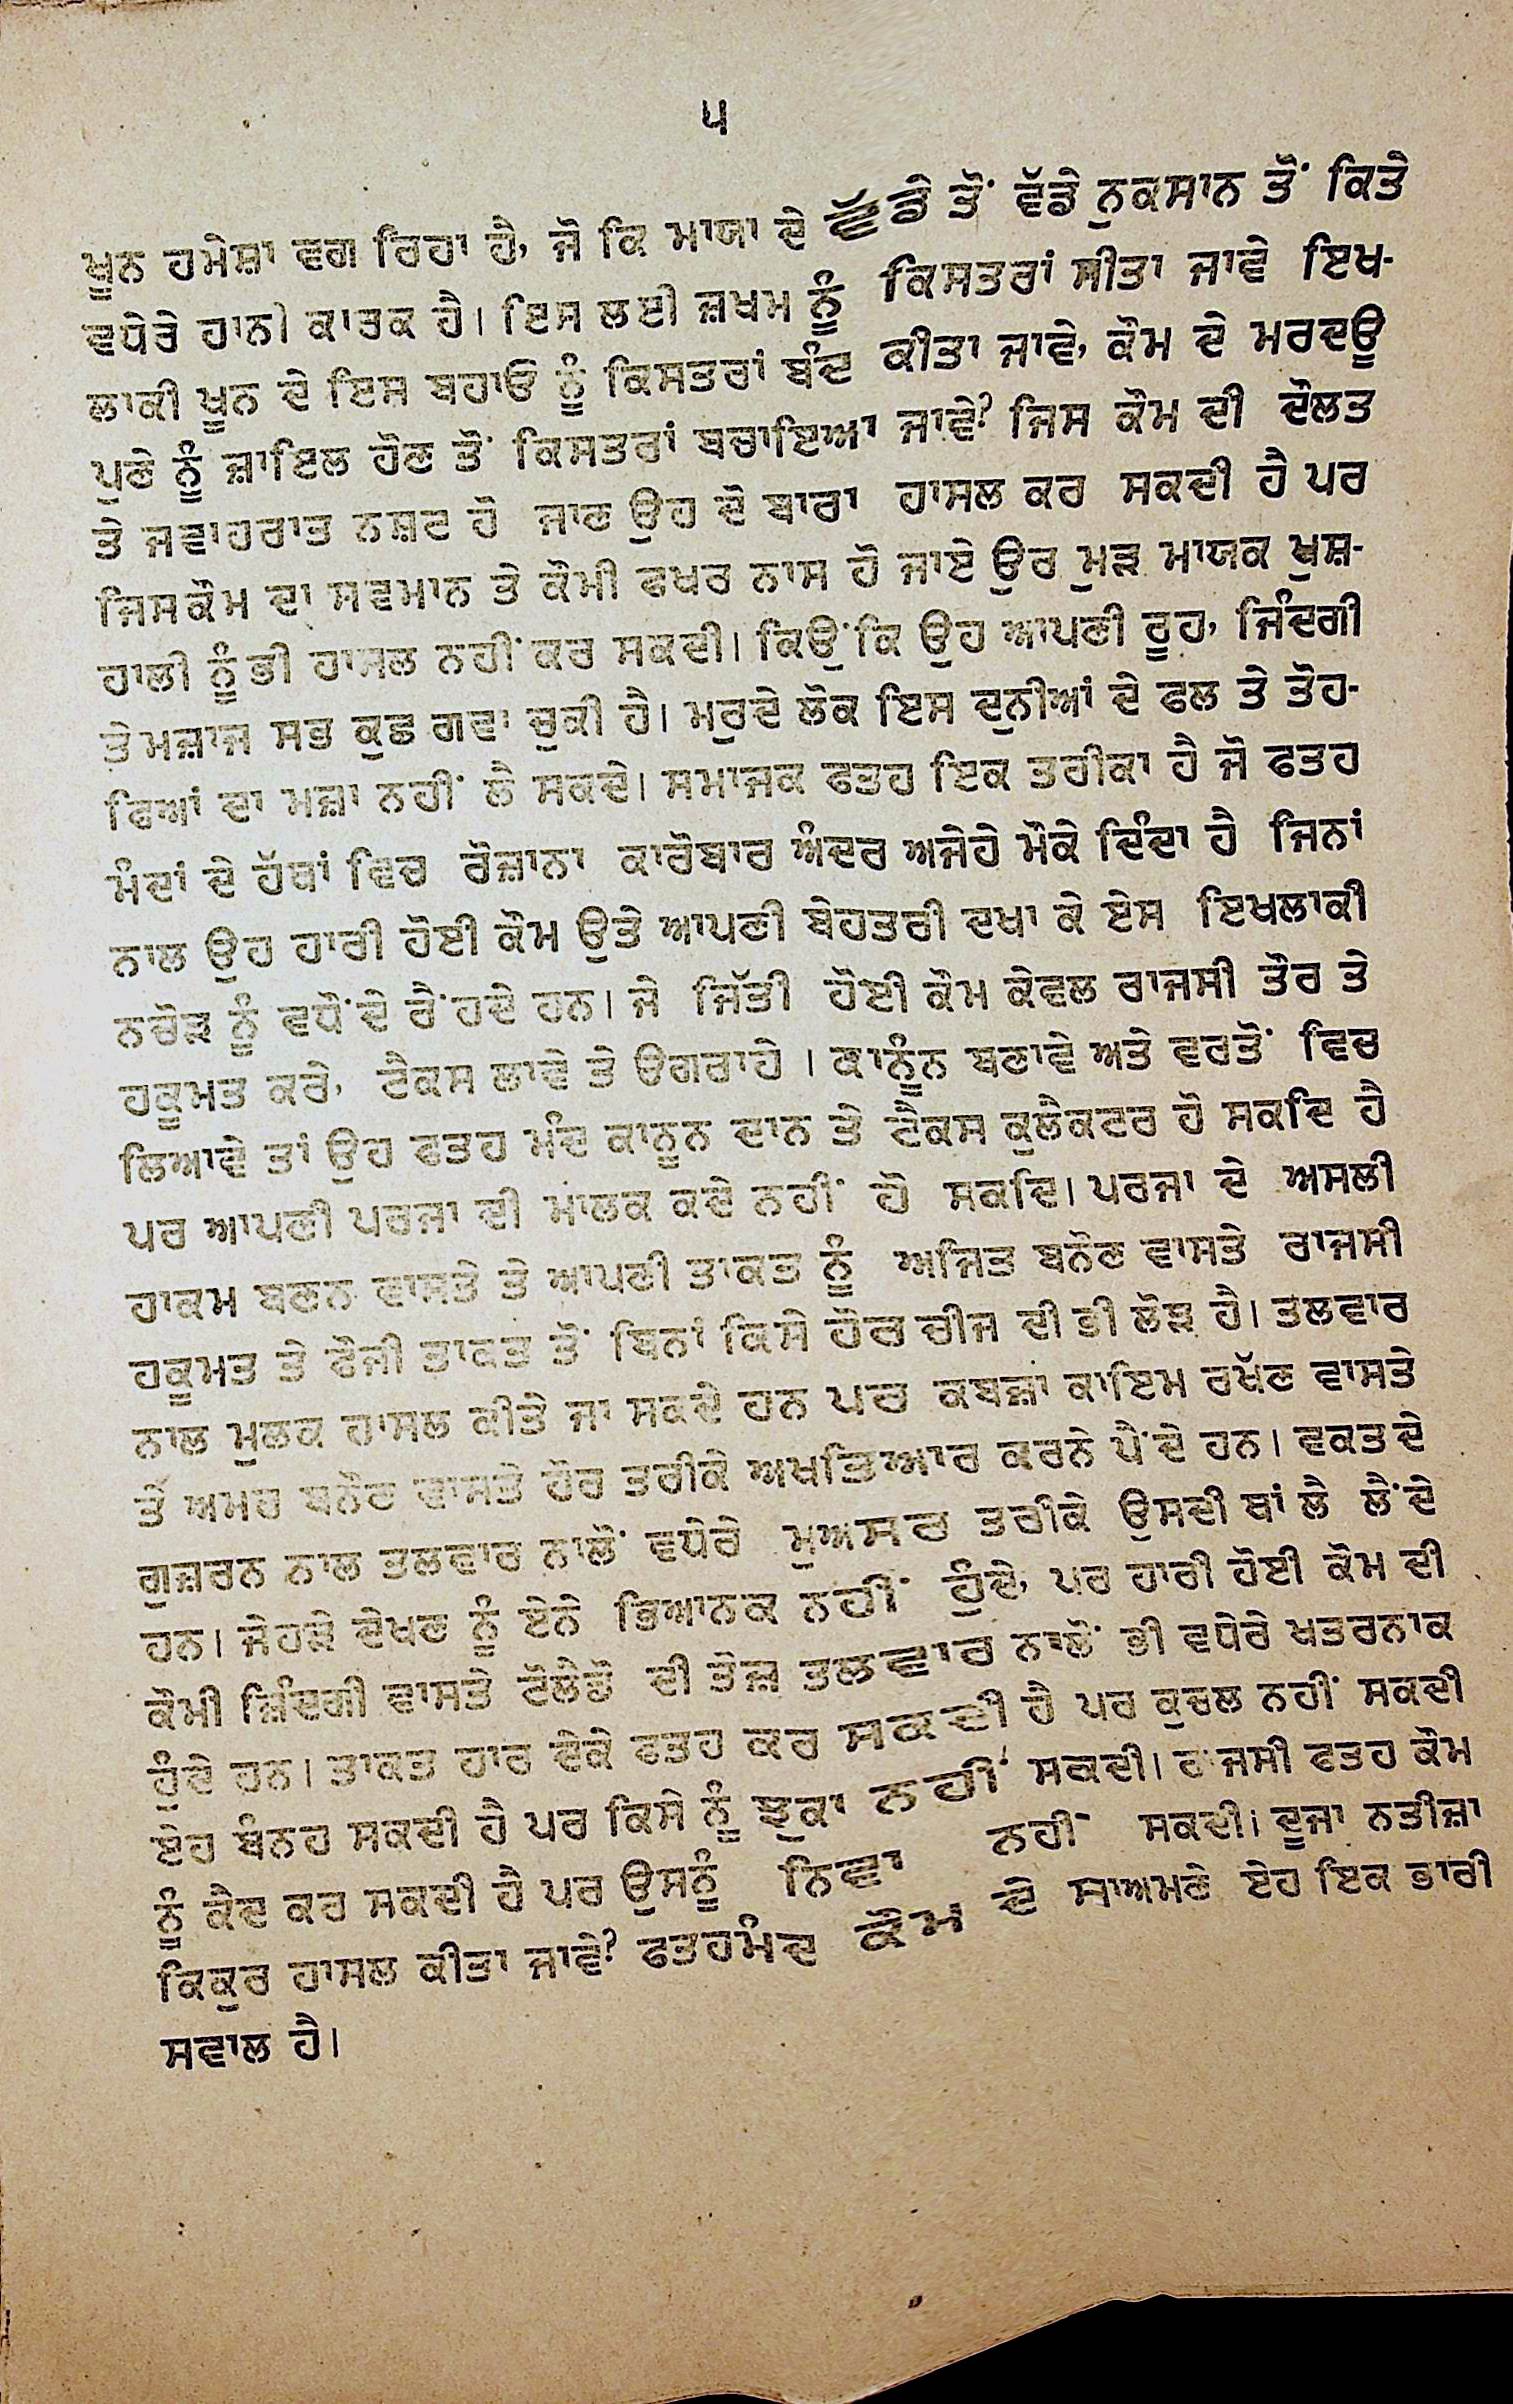 ੫
ਖੂਨ ਹਮੇਸ਼ਾ ਵਗ ਰਿਹਾ ਹੈ, ਜੋ ਕਿ ਮਾਯਾ ਦੇ ਵੱਡੇ ਤੋਂ ਵੱਡੇ ਨੁਕਸਾਨ ਤੋਂ ਕਿਤੇ
ਵਧੇਰੇ ਹਾਨੀ ਕਾਰਕ ਹੈ। ਇਸ ਲਈ ਜ਼ਖਮ ਨੂੰ ਕਿਸਤਰਾਂ ਸੀਤਾ ਜਾਵੇ ਇਖ-
ਲਾਕੀ ਖੂਨ ਦੇ ਇਸ ਬਹਾਓ ਨੂੰ ਕਿਸਤਰਾਂ ਬੰਦ ਕੀਤਾ ਜਾਵੇ, ਕੌਮ ਦੇ ਮਰਦਊ
ਪੁਣੇ ਨੂੰ ਜ਼ਾਇਲ ਹੋਣ ਤੋਂ ਕਿਸਤਰਾਂ ਬਚਾਇਆ ਜਾਵੇ? ਜਿਸ ਕੌਮ ਦੀ ਦੌਲਤ
ਤੇ ਜਵਾਹਰਾਤ ਨਸ਼ਟ ਹੋ ਜਾਣ ਉਹ ਦੋ ਬਾਰਾ ਹਾਸਲ ਕਰ ਸਕਦੀ ਹੈ ਪਰ
ਜਿਸਕੌਮ ਦਾ ਸਵਮਾਨ ਤੇ ਕੌਮੀ ਫਖਰ ਨਾਸ ਹੋ ਜਾਏ ਉਰ ਮੁੜ ਮਾਯਕ ਖੁਸ਼-
ਹਾਲੀ ਨੂੰ ਭੀ ਹਾਸਲ ਨਹੀਂ ਕਰ ਸਕਦੀ। ਕਿਉਂਕਿ ਉਹ ਆਪਣੀ ਰੂਹ, ਜਿੰਦਗੀ
ਤੇ ਮਜ਼ਾਜ ਸਭ ਕੁਛ ਗਵਾ ਚੁਕੀ ਹੈ। ਮਰੁਦੇ ਲੋਕ ਇਸ ਦੁਨੀਆਂ ਦੇ ਫਲ ਤੇ ਤੋਹ-
ਫਿਆਂ ਦਾ ਮਜ਼ਾ ਨਹੀਂ ਲੈ ਸਕਦੇ। ਸਮਾਜਕ ਫਤਹ ਇਕ ਤਰੀਕਾ ਹੈ ਜੋ ਫਤਹ
ਮੰਦਾਂ ਦੇ ਹੱਥਾਂ ਵਿਚ ਰੋਜ਼ਾਨਾ ਕਾਰੋਬਾਰ ਅੰਦਰ ਅਜੇਹੇ ਮੌਕੇ ਦਿੰਦਾ ਹੈ ਜਿਨਾਂ
ਨਾਲ ਉਹ ਹਾਰੀ ਹੋਈ ਕੌਮ ਉਤੇ ਆਪਣੀ ਬੇਹਤਰੀ ਦਖਾ ਕੇ ਏਸ ਇਖਲਾਕੀ
ਨਚੋੜ ਨੂੰ ਵਧੌਂਦੇ ਰੈਂਹਦੇ ਹਨ। ਜੇ ਜਿੱਤੀ ਹੋਈ ਕੌਮ ਕੇਵਲ ਰਾਜਸੀ ਤੌਰ ਤੇ
ਹਕੂਮਤ ਕਰੇ, ਟੈਕਸ ਲਾਵੇ ਤੇ ਓਗਰਾਹੇ । ਕਾਨੂੰਨ ਬਣਾਵੇ ਅਤੇ ਵਰਤੋਂ ਵਿਚ
ਲਿਆਵੇ ਤਾਂ ਉਹ ਫਤਹ ਮੰਦ ਕਾਨੂਨ ਦਾਨ ਤੇ ਟੈਕਸ ਕੁਲੈਕਟਰ ਹੋ ਸਕਦਿ ਹੈ
ਪਰ ਆਪਣੀ ਪਰਜਾ ਦੀ ਮਾਲਕ ਕਦੇ ਨਹੀਂ ਹੋ ਸਕਦਿ। ਪਰਜਾ ਦੇ ਅਸਲੀ
ਹਾਕਮ ਬਣਨ ਵਾਸਤੇ ਤੇ ਆਪਣੀ ਤਾਕਤ ਨੂੰ ਅਜਿਤ ਬਨੌਣ ਵਾਸਤੇ ਰਾਜਸੀ
ਹਕੂਮਤ ਤੇ ਫੌਜੀ ਤਾਕਤ ਤੋਂ ਬਿਨਾਂ ਕਿਸੇ ਹੋਰ ਚੀਜ ਦੀ ਭੀ ਲੋੜ ਹੈ। ਤਲਵਾਰ
ਨਾਲ ਮੁਲਕ ਹਾਸਲ ਕੀਤੇ ਜਾ ਸਕਦੇ ਹਨ ਪਰ ਕਬਜ਼ਾ ਕਾਇਮ ਰਖੱਣ ਵਾਸਤੇ
ਤੇ ਅਮਰ ਬਨੌਣ ਵਾਸਤੇ ਹੋਰ ਤਰੀਕੇ ਅਖਤਿਆਰ ਕਰਨੇ ਪੈਂਦੇ ਹਨ। ਵਕਤ ਦੇ
ਗੁਜ਼ਰਨ ਨਾਲ ਤਲਵਾਰ ਨਾਲੋਂ ਵਧੇਰੇ ਮੁਅਸਰ ਤਰੀਕੇ ਉਸਦੀ ਥਾਂ ਲੈ ਲੈਂਦੇ
ਹਨ। ਜੇਹੜੇ ਦੇਖਣ ਨੂੰ ਏਨੇ ਭਿਆਨਕ ਨਹੀਂ ਹੁੰਦੇ, ਪਰ ਹਾਰੀ ਹੋਈ ਕੌਮ ਦੀ
ਕੌਮੀ ਜ਼ਿੰਦਗੀ ਵਾਸਤੇ ਟੋਲੇਡੋ ਦੀ ਤੇਜ਼ ਤਲਵਾਰ ਨਾਲੋਂ ਭੀ ਵਧੇਰੇ ਖਤਰਨਾਕ
ਹੁੰਦੇ ਹਨ। ਤਾਕਤ ਹਾਰ ਦੇਕੇ ਫਤਹ ਕਰ ਸਕਦੀ ਹੈ ਪਰ ਕੁਚਲ ਨਹੀਂ ਸਕਦੀ
ਏਹ ਬੰਨਹ ਸਕਦੀ ਹੈ ਪਰ ਕਿਸੇ ਨੂੰ ਝੁਕਾ ਨਹੀਂ ਸਕਦੀ। ਰਾਜਸੀ ਫਤਹ ਕੌਮ
ਨੂੰ ਕੈਦ ਕਰ ਸਕਦੀ ਹੈ ਪਰ ਉਸਨੂੰ ਨਿਵਾ ਨਹੀਂ ਸਕਦੀ। ਦੂਜਾ ਨਤੀਜ਼ਾ
ਕਿਕੁਰ ਹਾਸਲ ਕੀਤਾ ਜਾਵੇ? ਫਤਹਮੰਦ ਕੌਮ ਦੇ ਸਾਅਮਣੇ ਏਹ ਇਕ ਭਾਰੀ
ਸਵਾਲ ਹੈ।